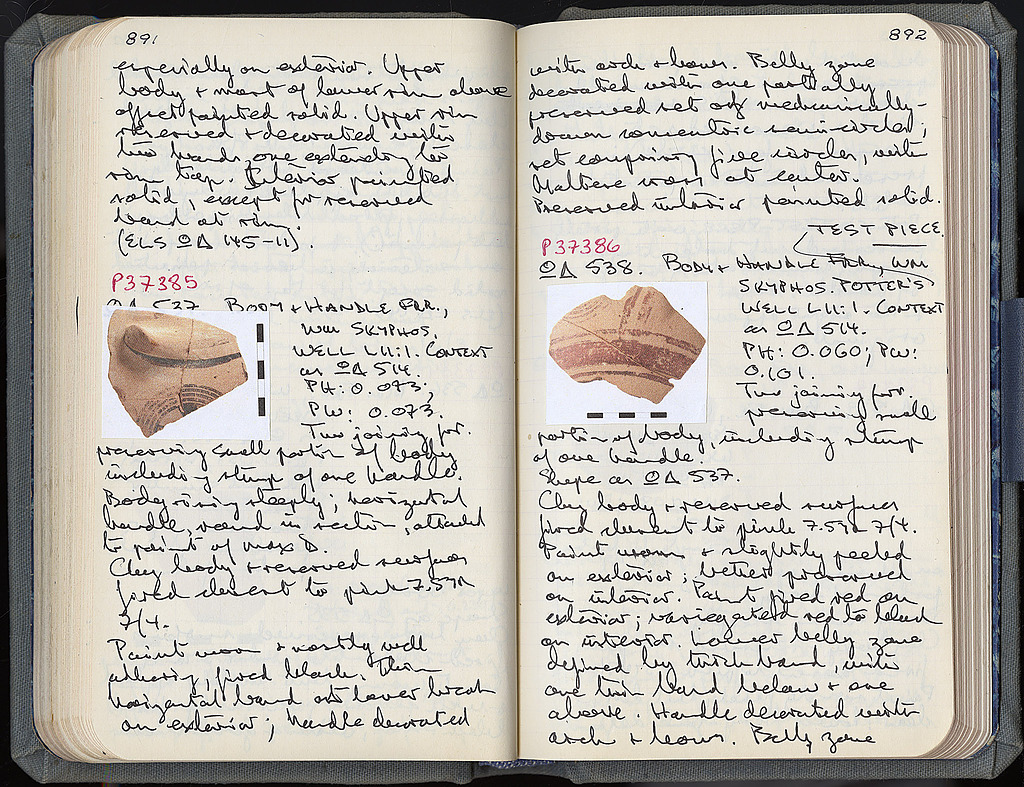 891
especially on exterior. Upper
body + most of lower rim above
offset painted solid. Upper rim
reserved + decorated with
two bands, one extending to
rim top. Interior painted
solid, except for reserved
band at rim.
(ELS ΟΔ 145-11).
P37385
ΟΔ 537. BODY + HANDLE FRR.,
WM SKYPHOS.
WELL L11:1. CONTEXT
as ΟΔ 514.
PH: 0.073;
PW: 0.073.
Two joining frr.
preserving small portion of body
including stump of one handle.
Body rising steeply; horizontal
handle, round in section, attached
to point of max D.
Clay body + reserved surfaces
fired closest to pink 7.5YR
7/4.
Paint worn + mostly well
adhering, fired black. Thin
horizontal band at lower break
on exterior; handle decorated
892
with arch + bows. Belly zone
decorated with one partially
preserved set of mechanically-
drawn concentric semi-circles;
set comprising five circles, with
Maltese cross at center.
Preserved interior painted solid.
TEST PIECE.
P37386
ΟΔ 538. BODY + HANDLE FRR., WM
SKYPHOS. POTTER'S
WELL L11:1. CONTEXT
as ΟΔ 514.
PH: 0.060; PW:
0.101.
Two joining frr.
preserving small
portion of body, including stump
of one handle.
Shape as ΟΔ 537.
Clay body + reserved surfaces
fired closest to pink 7.5YR 7/4.
Paint worn + slightly peeled
on exterior; better preserved
on interior. Paint fired red on
exterior; variegated red to black
on interior. Lower belly zone
defined by thick band, with
one thin band below + one
above. Handle decorated with
arch + bows. Belly zone